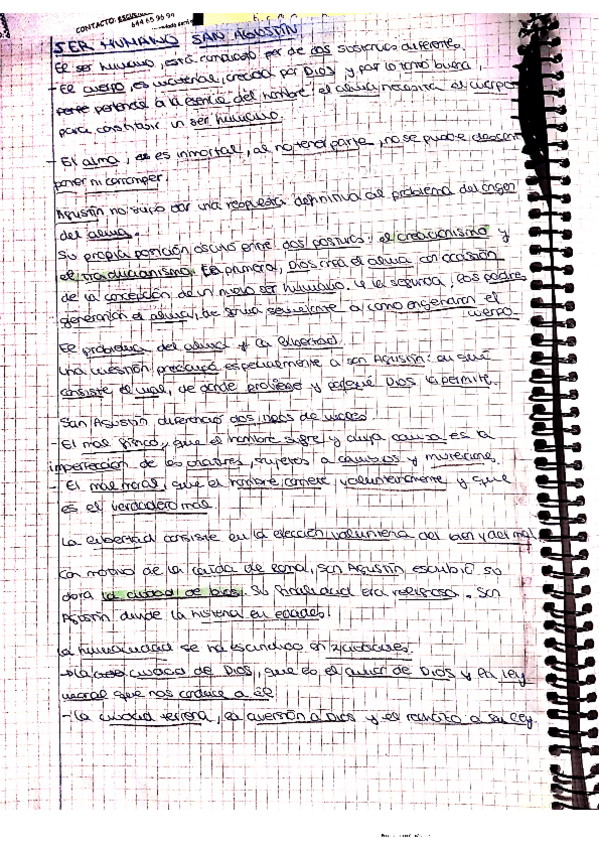 CONTACTO:
644 65 96 99
SER HUMANO SAN AGUSTÍN
El ser humano, está compuesto por de dos sustancias diferentes.
- El cuerpo, es material, creado por Dios y por lo tanto bueno,
perte pertenece a la esencia del hombre: el alma necesita el cuerpo
para constituir un ser humano.
- El alma, es es inmortal, al no tener parte, no se puede descom
poner ni corromper.
Agustín no supo dar una respuesta definitiva al problema del origen
del alma.
Su propia posición osciló entre dos posturas: el creacionismo y
el traducianismo. La primera, Dios crea el alma con ocasión
de la concepción de un nuevo ser humano. Y la segunda, los padres
generarían el alma, de forma semejante a como engendran el
cuerpo.
El problema del alma y la libertad.
Una cuestión preocupó especialmente a san Agustín: en qué
consiste el mal, de dónde proviene y porque Dios lo permite.
San Agustín diferenció dos tipos de males
- El mal físico, que el hombre sufre y cuya causa es la
imperfección de los criaturas, sujetos a cambios y mutaciones.
- El mal moral, que el hombre comete, voluntariamente y que
es el verdadero mal.
La libertad consiste en la elección voluntaria del bien y del mal
Con motivo de la caída de Roma, San Agustín escribió su
obra la ciudad de Dios. Su finalidad era religiosa. San
Agustín divide la historia en edades.
La humanidad se ha escindido en 2 ciudades:
→ La ciudad de Dios, que es el amor de Dios y la ley
moral que nos conduce a él
- La ciudad terrena, la aversión a Dios y el rechazo a su ley.